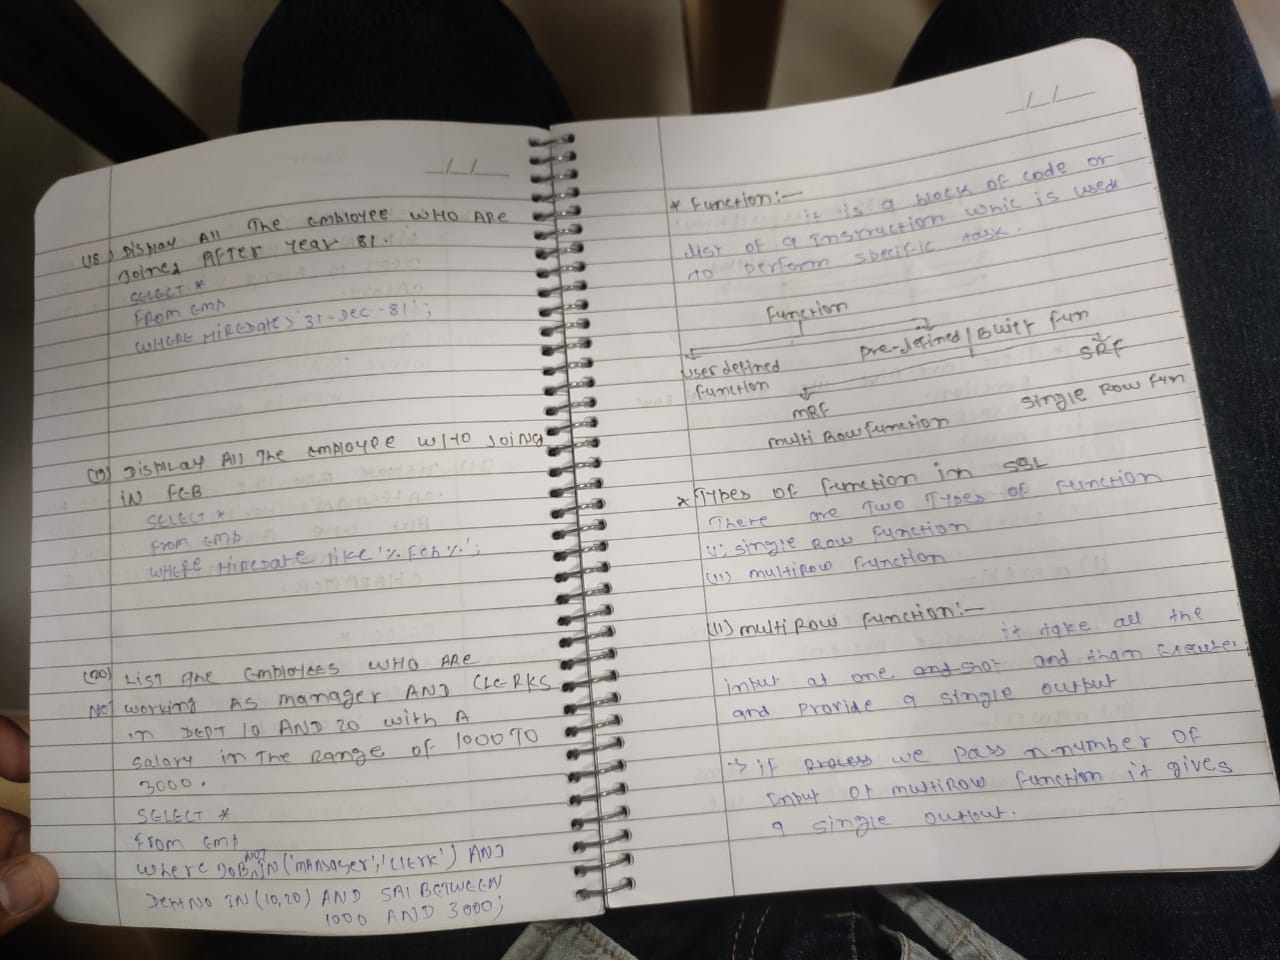 (18) Display All The employee WHO ARE
joined AFTER year 81.
SELECT *
From emp
WHERE HIREDATE > '31-Dec-81';
(19) DISPLAY All The employee WHO Joing
in FEB
SELECT *
From emp
WHERE Hiredate like '%Feb%';
(20) List The Employees WHO ARE
Not working AS manager AND CLERKS
in DEPT 10 AND 20 with A
salary in The Range of 1000 TO
3000.
SELECT *
From emp
where JOB NOT IN ('MANAGER','Clerk') AND
DeptNo IN (10,20) AND SAl BETWEEN
1000 AND 3000;
* Function:-
it is a block of code or
list of a Instruction whic is used
to perform specific task.
Function
User defined Pre-defined / Built fun
function SRF
MRF Single Row fun
multi Row function
* Types of function in SQL
There are Two Types of function
(i) single Row function
(ii) multiRow function
(ii) multi Row function:-
it take all the
input at one shot and than Execute
and provide a single output
→ if process we pass n-number of
Input of multiRow function it gives
a single output.